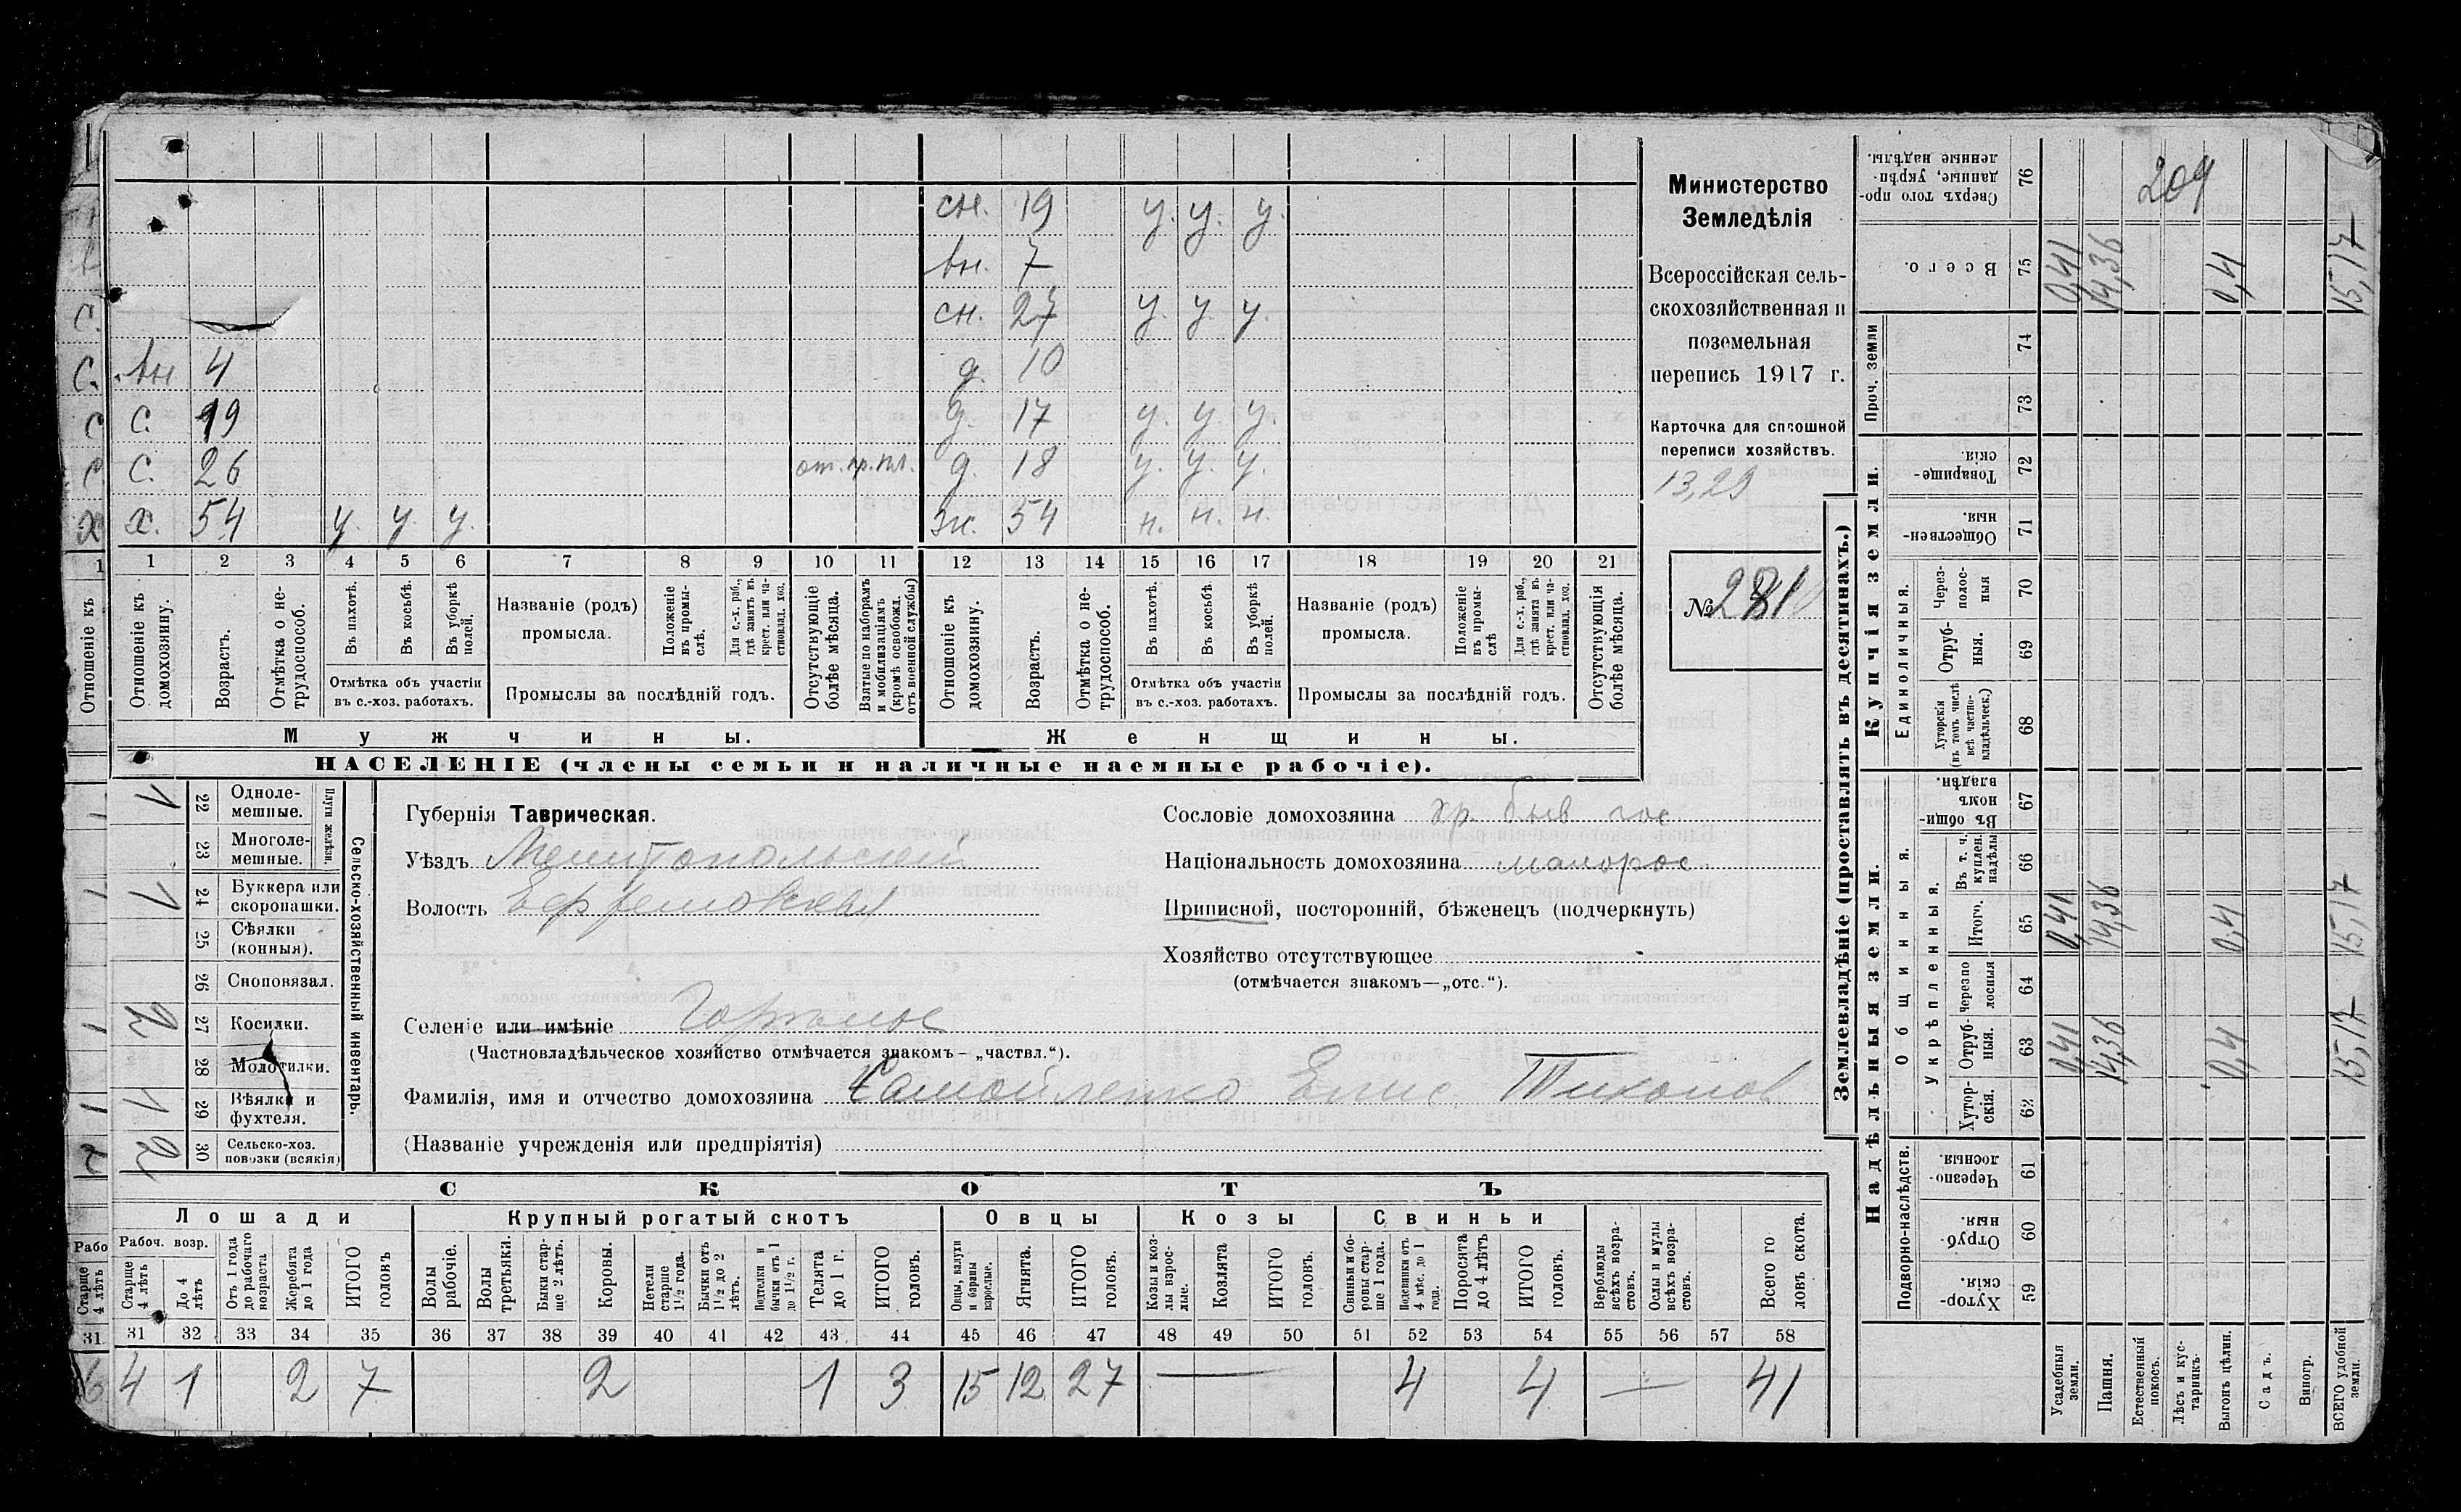 сн. 19 у. у. у.
вн. 7
сн. 27 у. у. у.
вн 4 д. 10
С. 19 д. 17 у. у. у.
С. 26 от. гр. пл. д. 18 у. у. у.
Х. 54 у. у. у. Ж. 54 н. н. н.
1 2 3 4 5 6 7 8 9 10 11 12 13 14 15 16 17 18 19 20 21
Отношеніе къ
Отношеніе къ домохозяину.
Возрастъ.
Отмѣтка о не-трудоспособ.
Въ пахотѣ.
Въ косьбѣ.
Въ уборкѣ полей.
Отмѣтка объ участіи
въ с.-хоз. работахъ.
Названіе (родъ)
промысла.
Положеніе въ промы-слѣ.
Для с.-х. раб., гдѣ занятъ въ крест. или ча-стновлад. хоз.
Промыслы за послѣдній годъ.
Отсутствующіе болѣе мѣсяца.
Взятые по наборамъ и мобилизаціямъ (кромѣ освобожд. отъ военной службы)
Отношеніе къ домохозяину.
Возрастъ.
Отмѣтка о не-трудоспособ.
Въ пахотѣ.
Въ косьбѣ.
Въ уборкѣ полей.
Отмѣтка объ участіи
въ с.-хоз. работахъ.
Названіе (родъ)
промысла.
Положеніе въ промы-слѣ
Для с.-х. раб., гдѣ занята въ крест. или ча-стновлад. хоз.
Промыслы за послѣдній годъ.
Отсутствующія болѣе мѣсяца.
Мужчины.
Женщины.
НАСЕЛЕНІЕ (члены семьи и наличные наемные рабочіе).
Министерство
Земледѣлія
Всероссійская сель-
скохозяйственная и
поземельная
перепись 1917 г.
Карточка для сплошной
переписи хозяйствъ.
13,29
№ 281
Сельско-хозяйственный инвентарь
Плуги желѣзн.
1 22 Одноле-мешные.
23 Многоле-мешные.
1 24 Буккера или скоропашки.
25 Сѣялки (конныя).
26 Сноповязал.
2 27 Косилки.
28 Молотилки.
1 29 Вѣялки и фухтеля.
2 30 Сельско-хоз. повозки (всякія)
Губернія Таврическая.
Уѣздъ Мелитопольскій
Волость Ефремовская
Селеніе или имѣніе
(Частновладѣльческое хозяйство отмѣчается знакомъ – „частвл.“).
Фамилія, имя и отчество домохозяина Самойленко Елис. Тихонов
(Названіе учрежденія или предпріятія)
Сословіе домохозяина кр. быв гос.
Національность домохозяина малорос.
Приписной, посторонній, бѣженецъ (подчеркнуть)
Хозяйство отсутствующее
(отмѣчается знакомъ—„отс.“).
СКОТЪ
Лошади Крупный рогатый скотъ Овцы Козы Свиньи
Рабоч. возр.
Старше 4 лѣтъ
До 4 лѣтъ
Отъ 1 года до рабочаго возраста
Жеребята до 1 года
ИТОГО головъ
Волы рабочіе.
Волы третьяки.
Быки стар-ше 2 лѣтъ.
Коровы.
Нетели старше 1½ года.
Бычки отъ 1½ до 2 лѣтъ.
Подтелки и бычки отъ 1 до 1½ г.
Телята до 1 г.
ИТОГО головъ.
Овцы, валухи и бараны взрослые.
Ягнята.
ИТОГО головъ.
Козы и коз-лы взрос-лые.
Козлята
ИТОГО головъ.
Свиньи и бо-ровы стар-ше 1 года.
Подсвинки отъ 4 мѣс. до 1 года.
Поросята до 4 лѣтъ
ИТОГО головъ.
Верблюды всѣхъ возра-стовъ.
Ослы и мулы всѣхъ возра-стовъ.
Всего го ловъ скота.
31 32 33 34 35 36 37 38 39 40 41 42 43 44 45 46 47 48 49 50 51 52 53 54 55 56 57 58
4 1 2 7 2 1 3 15 12 27 — 4 4 — 41
Землевладѣніе (проставлять въ десятинахъ.)
Купчія земли.
Надѣльныя земли.
Проч. земли
Единоличныя.
Общинныя.
Укрѣпленныя.
Подворно-наслѣдств.
76 Сверхъ того про-данные, укрѣп-ленные надѣлы.
209
75 Всего. 0,41 14,36 0,4 15,17
74
73
72 Товарище-скія
71 Обществен-ныя.
70 Через-полос-ныя
69 Отруб-ныя.
68 Хуторскія (въ томъ числѣ всѣ частно-владѣльческ.)
67 Въ общи-номъ владѣн.
66 Въ т. ч. куплен. надѣлы
65 Итого. 0,41 14,36 0,4 15,17
64 Черезпо лосныя
63 Отруб-ныя. 0,41 14,36 0,4 15,17
62 Хутор-скія.
61 Черезпо-лосныя.
60 Отруб-ныя.
59 Хутор-скія.
Усадебныя земли.
Пашня.
Естественный покосъ.
Лѣсъ и кус-тарникъ
Выгонъ цѣлин.
Садъ.
Виногр.
ВСЕГО удобной земли.